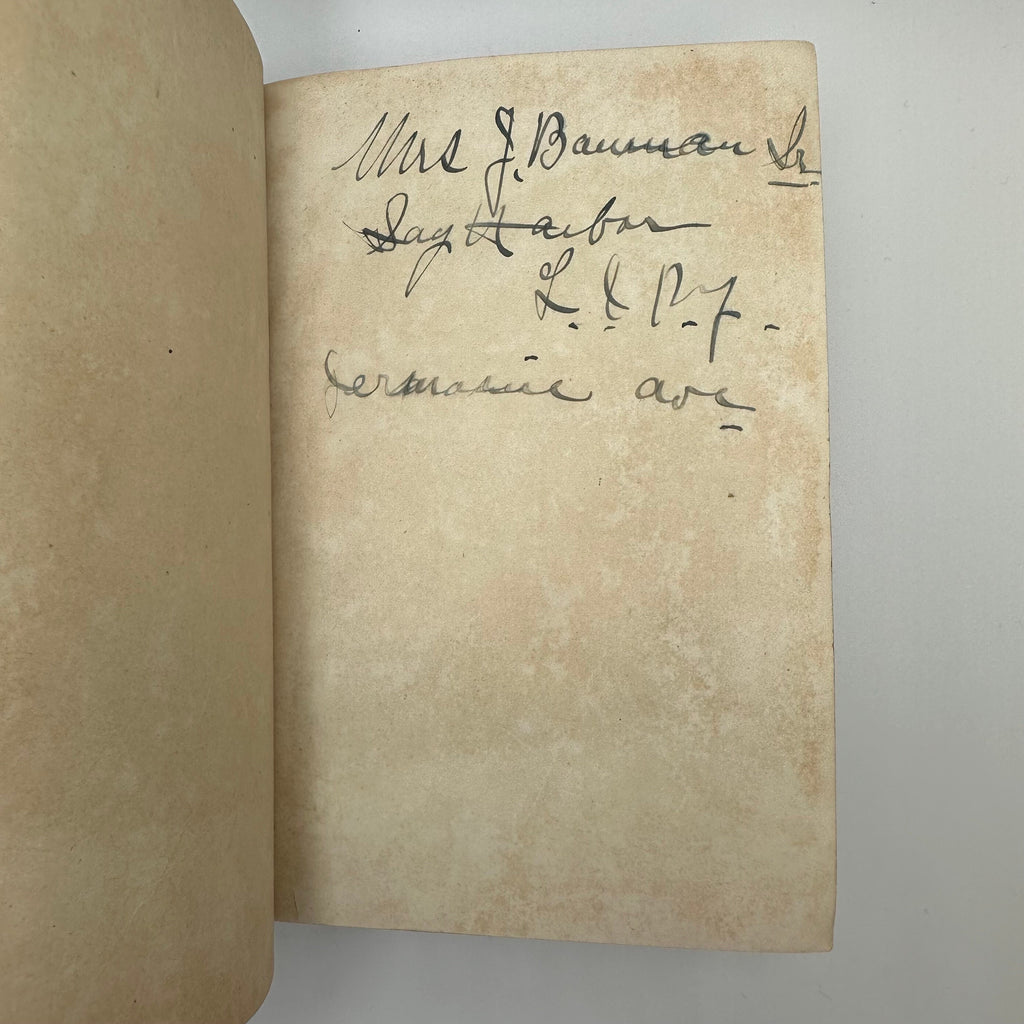 Mrs J. Bauman Sr.
Sag Harbor
L. I. N.Y.
Jermaine ave